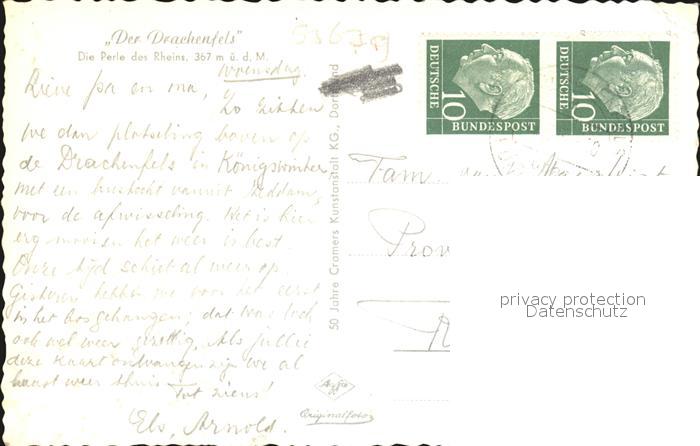 „Der Drachenfels"
Die Perle des Rheins, 367 m ü. d. M.
Woensdag
Lieve pa en ma,
Zo zitten
we dan plotseling boven op
de Drachenfels in Königswinter
met een bustocht vanuit Zeddam,
voor de afwisseling. Het is hier
erg mooi en het weer is best.
Onze tijd schiet al weer op.
Gisteren hebben we voor het eerst
in het bos gehangen; dat was toch
ook wel weer gezellig. Als jullie
deze kaart ontvangen zijn we al
haast weer thuis. Tot ziens!
Els, Arnold.
50 Jahre Cramers Kunstanstalt KG., Dortmund
Originalfoto
DEUTSCHE
10
BUNDESPOST
DEUTSCHE
10
BUNDESPOST
Fam.
Prov
privacy protection
Datenschutz